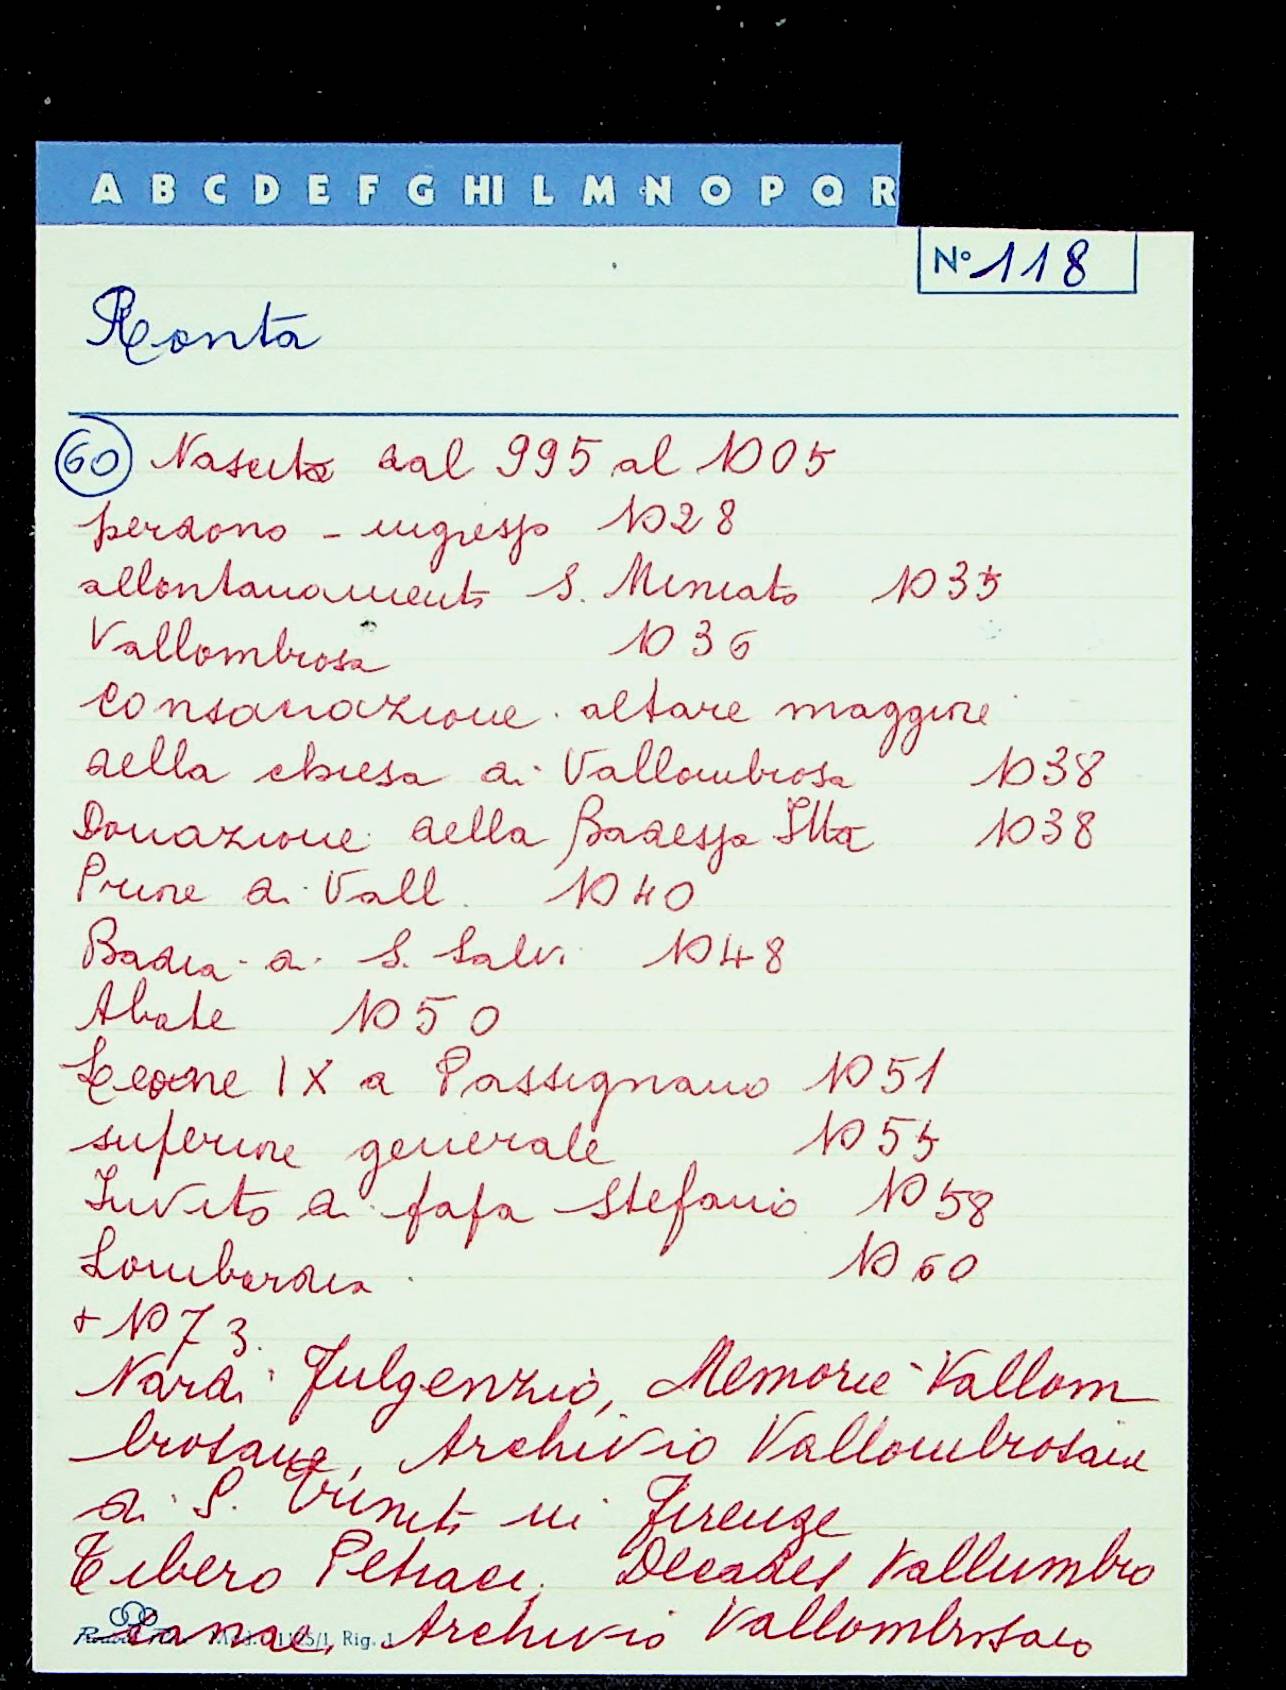 A B C D E F G HI L M N O P Q R
N° 118
Ronta
60 Nascita dal 995 al 1005
perdono - ingresso 1028
allontanamento S. Miniato 1035
Vallombrosa 1036
consacrazione altare maggiore
della chiesa di Vallombrosa 1038
Donazione della Badessa Itta 1038
Priore di Vall. 1040
Badia di S. Salvi 1048
Abate 1050
Leone IX a Passignano 1051
superiore generale 1055
Invito di papa Stefano 1058
Lombardia 1060
+ 1073.
Nardi Fulgenzio, Memorie Vallom
brosane, Archivio Vallombrosano
di S. Trinita in Firenze
Tibero Petracci, Decades Vallumbro
sanae, Archivio Vallombrosano
Rig. 1